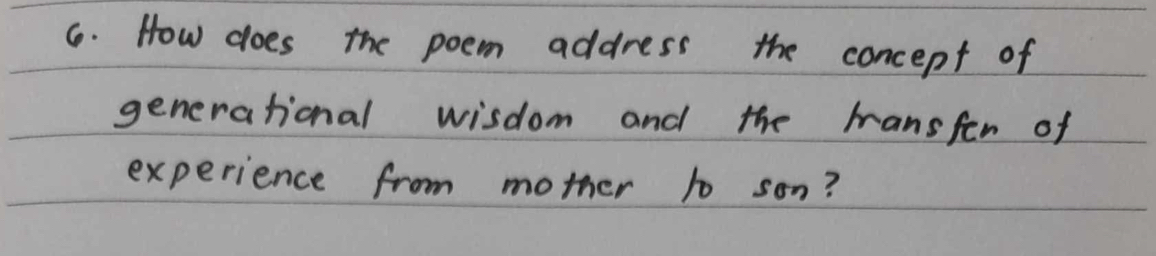 6. How does the poem address the concept of
generational wisdom and the transfer of
experience from mother to son?